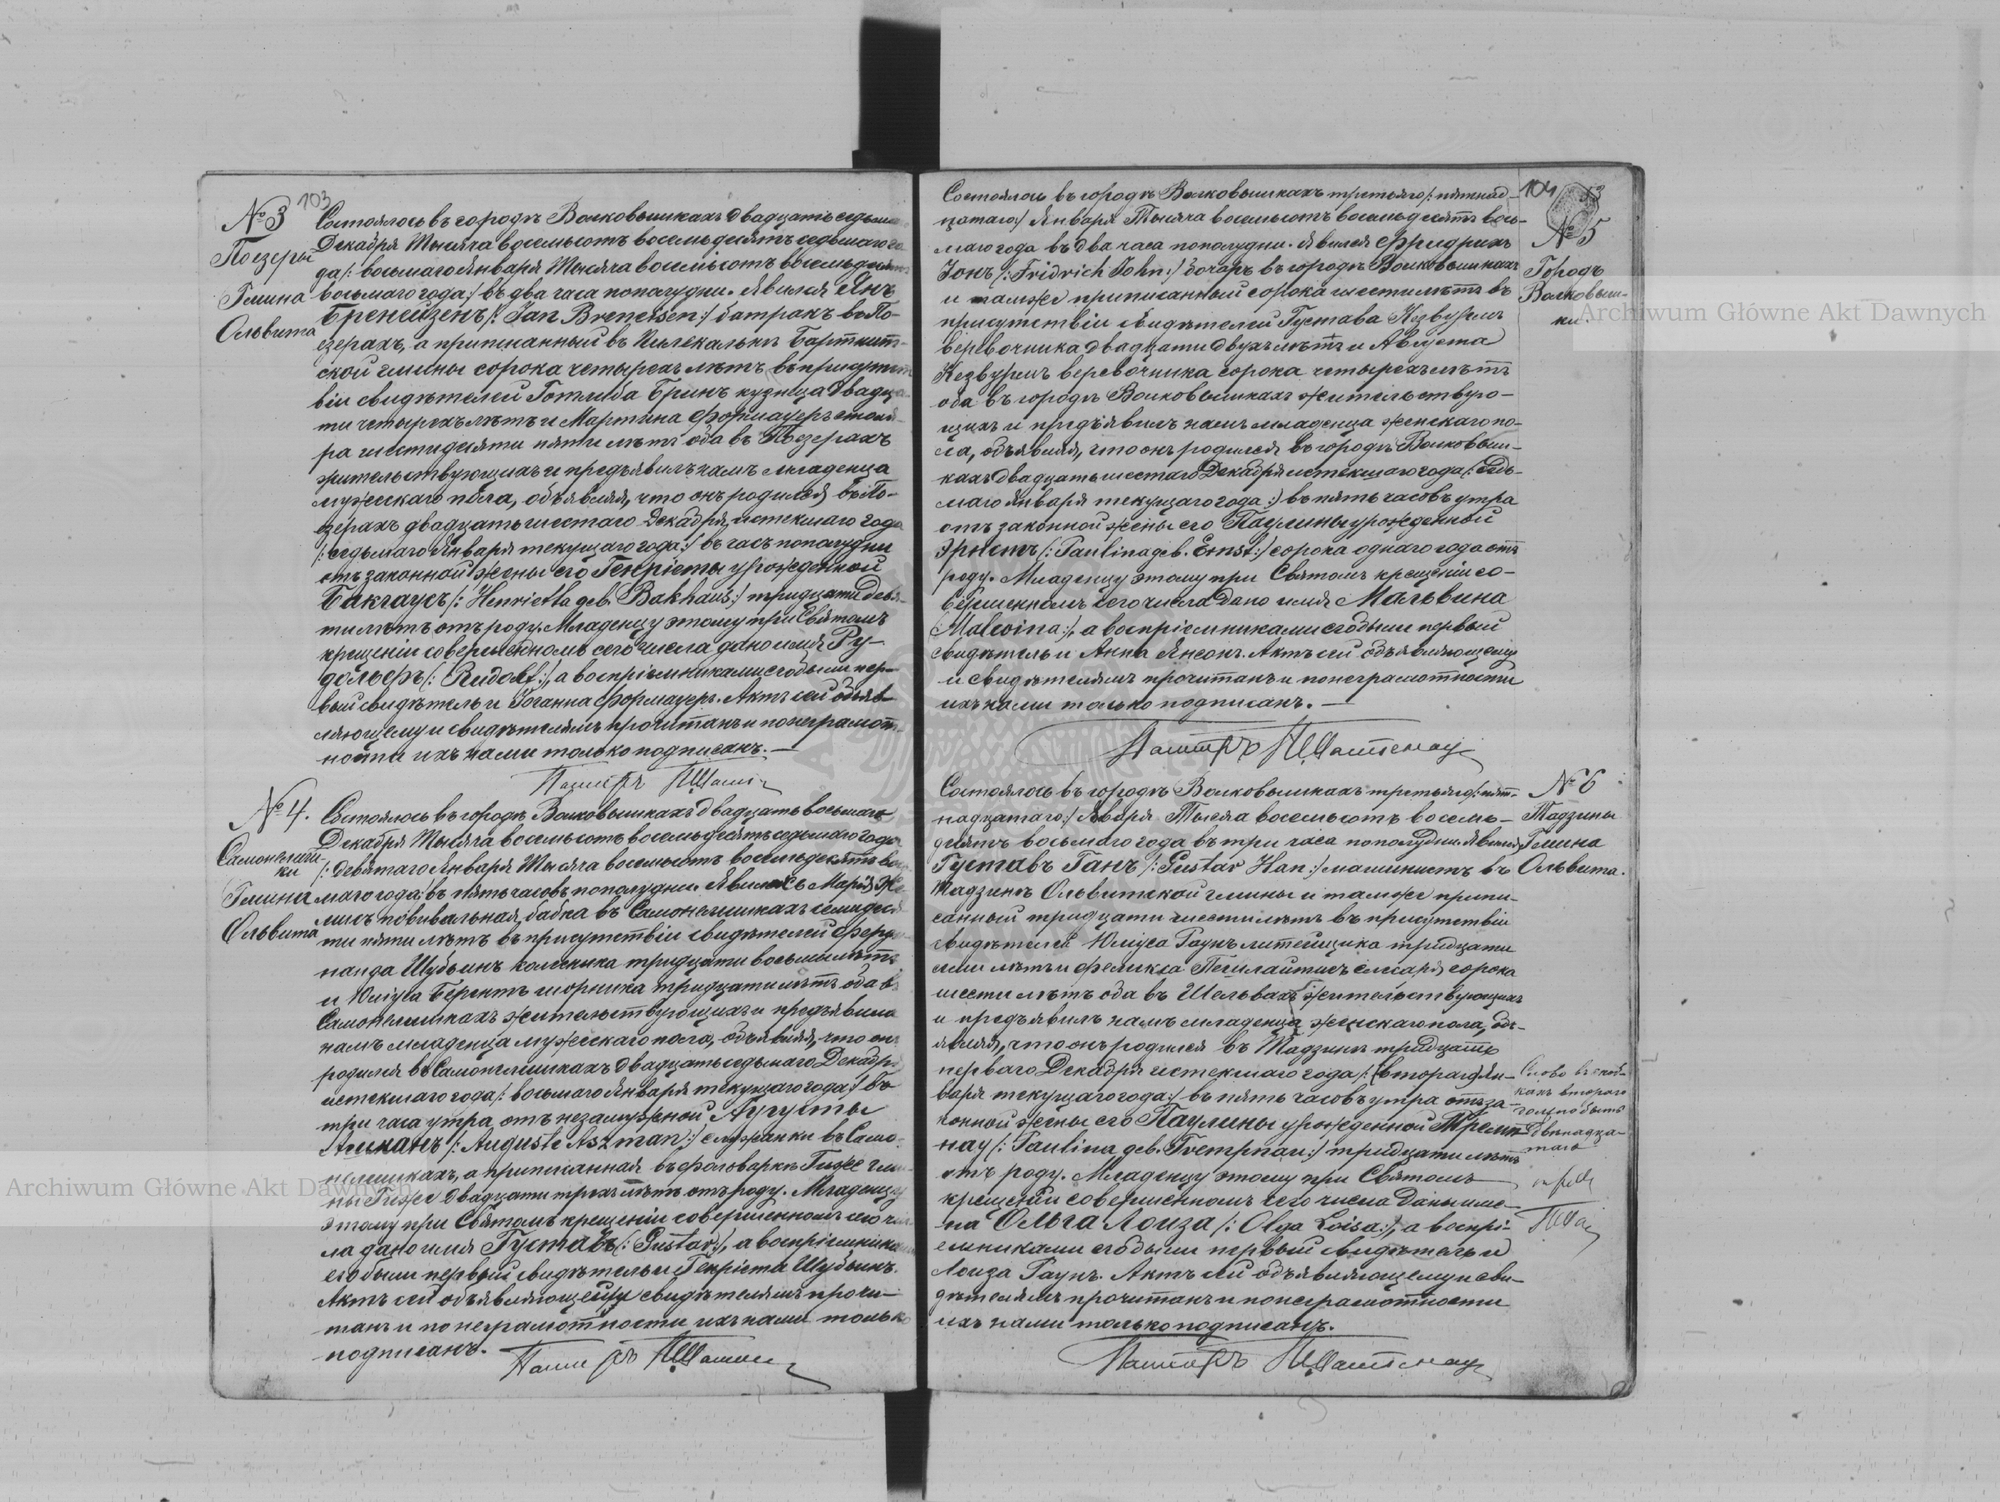 103
№ 3
Поезеры
Гмина
Ольвита
Состоялось въ городѣ Волковышкахъ двадцать седьма
Декабря Тысяча восемьсотъ восемьдесятъ седьмаго го
да /: восьмаго Января Тысяча восемьсотъ восемьдесятъ
восьмаго года :/ въ два часа пополудни. Явился Янъ
Бренейзенъ /: Jan Breneisen :/ батракъ въ По-
езерахъ, а приписанный въ Бартнит-
ской гмины сорока четырехъ лѣтъ въ присутст
віи свидѣтелей Готлиба Бринъ кузнеца двадца
ти четырехъ лѣтъ и Мартина Формауеръ столя
ра шестидесяти пяти лѣтъ оба въ Поезерахъ
жительствующихъ и предъявилъ намъ младенца
мужескаго пола, объявляя, что онъ родился въ По-
езерахъ двадцать шестаго Декабря истекшаго года
/: седьмаго Января текущаго года :/ въ часъ пополудни
отъ законной жены его Генріеты урожденной
Бакгаусъ /: Henrietta geb. Bakhaus :/ тридцати девя-
ти лѣтъ отъ роду. Младенцу этому при Святомъ
крещеніи совершенномъ сего числа дано имя Ру-
дольфъ /: Rudolf :/, а воспріемниками его были пер-
вый свидѣтель и Іоганна Формауеръ. Актъ сей объяв-
ляющему и свидѣтелямъ прочитанъ и по неграмот-
ности ихъ нами только подписанъ. —
Пасторъ
№ 4.
Гмина
Ольвита
Состоялось въ городѣ Волковышкахъ двадцать восьмаго
Декабря Тысяча восемьсотъ восемьдесятъ седьмаго года
/: девятаго Января Тысяча восемьсотъ восемьдесятъ вось
маго года :/ въ пять часовъ пополудни. Явилась Марія
повивальная бабка въ семидеся
ти пяти лѣтъ въ присутствіи свидѣтелей Ферди
нанда Шубринъ колесника тридцати восьми лѣтъ
и Юліуса Берентъ шорника тридцати лѣтъ оба въ
жительствующихъ и предъявила
намъ младенца мужескаго пола, объявляя, что онъ
родился въ двадцать седьмаго Декабря
истекшаго года /: восьмаго Января текущаго года :/ въ
три часа утра, отъ незамужней Аугусты
Ашманъ /: Auguste Aszman :/ служанки въ Само-
а приписанная въ фольваркѣ Гижсе гми
ны Гижсе двадцати трехъ лѣтъ отъ роду. Младенцу
этому при Святомъ крещеніи совершенномъ сего чис
ла дано имя Густавъ /: Gustav :/, а воспріемниками
его были первый свидѣтель и Генріета Шубринъ.
Актъ сей объявляющему и свидѣтелямъ прочи-
танъ и по неграмотности ихъ нами только
подписанъ.
Пасторъ
104
53
№ 5
Городъ
Волковыш-
ки.
Состоялось въ городѣ Волковышкахъ третьяго /: пятнад-
цатаго :/ Января Тысяча восемьсотъ восемьдесятъ вось-
маго года въ два часа пополудни. Явился Фридрихъ
Іонъ /: Fridrich John :/ бочаръ въ городѣ Волковышкахъ
и тамже приписанный сорока шести лѣтъ въ
присутствіи свидѣтелей Густава Кезвурмъ
веревочника двадцати двухъ лѣтъ и Августа
Кезвурмъ веревочника сорока четырехъ лѣтъ
оба въ городѣ Волковышкахъ жительствую-
щихъ и предъявилъ намъ младенца женскаго по-
ла, объявляя, что онъ родился въ городѣ Волковыш-
кахъ двадцать шестаго Декабря истекшаго года /: седь-
маго Января текущаго года :/ въ пять часовъ утра
отъ законной жены его Паулины урожденной
Эрнстъ /: Paulina geb. Ernst :/ сорока однаго года отъ
роду. Младенцу этому при Святомъ крещеніи со-
вершенномъ сего числа дано имя Мальвина
/: Malwina :/, а воспріемниками его были первый
свидѣтель и Анна Янсонъ. Актъ сей объявляющему
и свидѣтелямъ прочитанъ и по неграмотности
ихъ нами только подписанъ. —
Пасторъ
№ 6
Тадзины
Гмина
Ольвита.
Состоялось въ городѣ Волковышкахъ третьяго /: пят-
надцатаго :/ Января Тысяча восемьсотъ восемь-
десятъ восьмаго года въ три часа пополудни. Явился
Густавъ Ганъ /: Gustav Han :/ машинистъ въ
Тадзинѣ Ольвитской гмины и тамже припи-
санный тридцати шести лѣтъ въ присутствіи
свидѣтелей Юліуса Гаунъ литейщика тридцати
лѣтъ и Феликса слесаря сорока
шести лѣтъ оба въ Шельвахъ жительствующихъ
и предъявилъ намъ младенца женскаго пола, объ-
являя, что онъ родился въ Тадзинѣ тридцать
перваго Декабря истекшаго года /: (втораго) Ян-
варя текущаго года :/ въ пять часовъ утра отъ за-
конной жены его Паулины урожденной Тремп-
нау /: Paulina geb. Trempnau :/ тридцати лѣтъ
отъ роду. Младенцу этому при Святомъ
крещеніи совершенномъ сего числа даны име-
на Ольга Лоиза /: Olga Loisa :/, а воспрі-
емниками его были первый свидѣтель и
Лоиза Гаунъ. Актъ сей объявляющему и сви-
дѣтелямъ прочитанъ и по неграмотности
ихъ нами только подписанъ.
Пасторъ
Слово въ скоб-
кахъ втораго
должно быть
двѣнадца-
таго
Archiwum Główne Akt Dawnych
Archiwum Główne Akt Dawnych